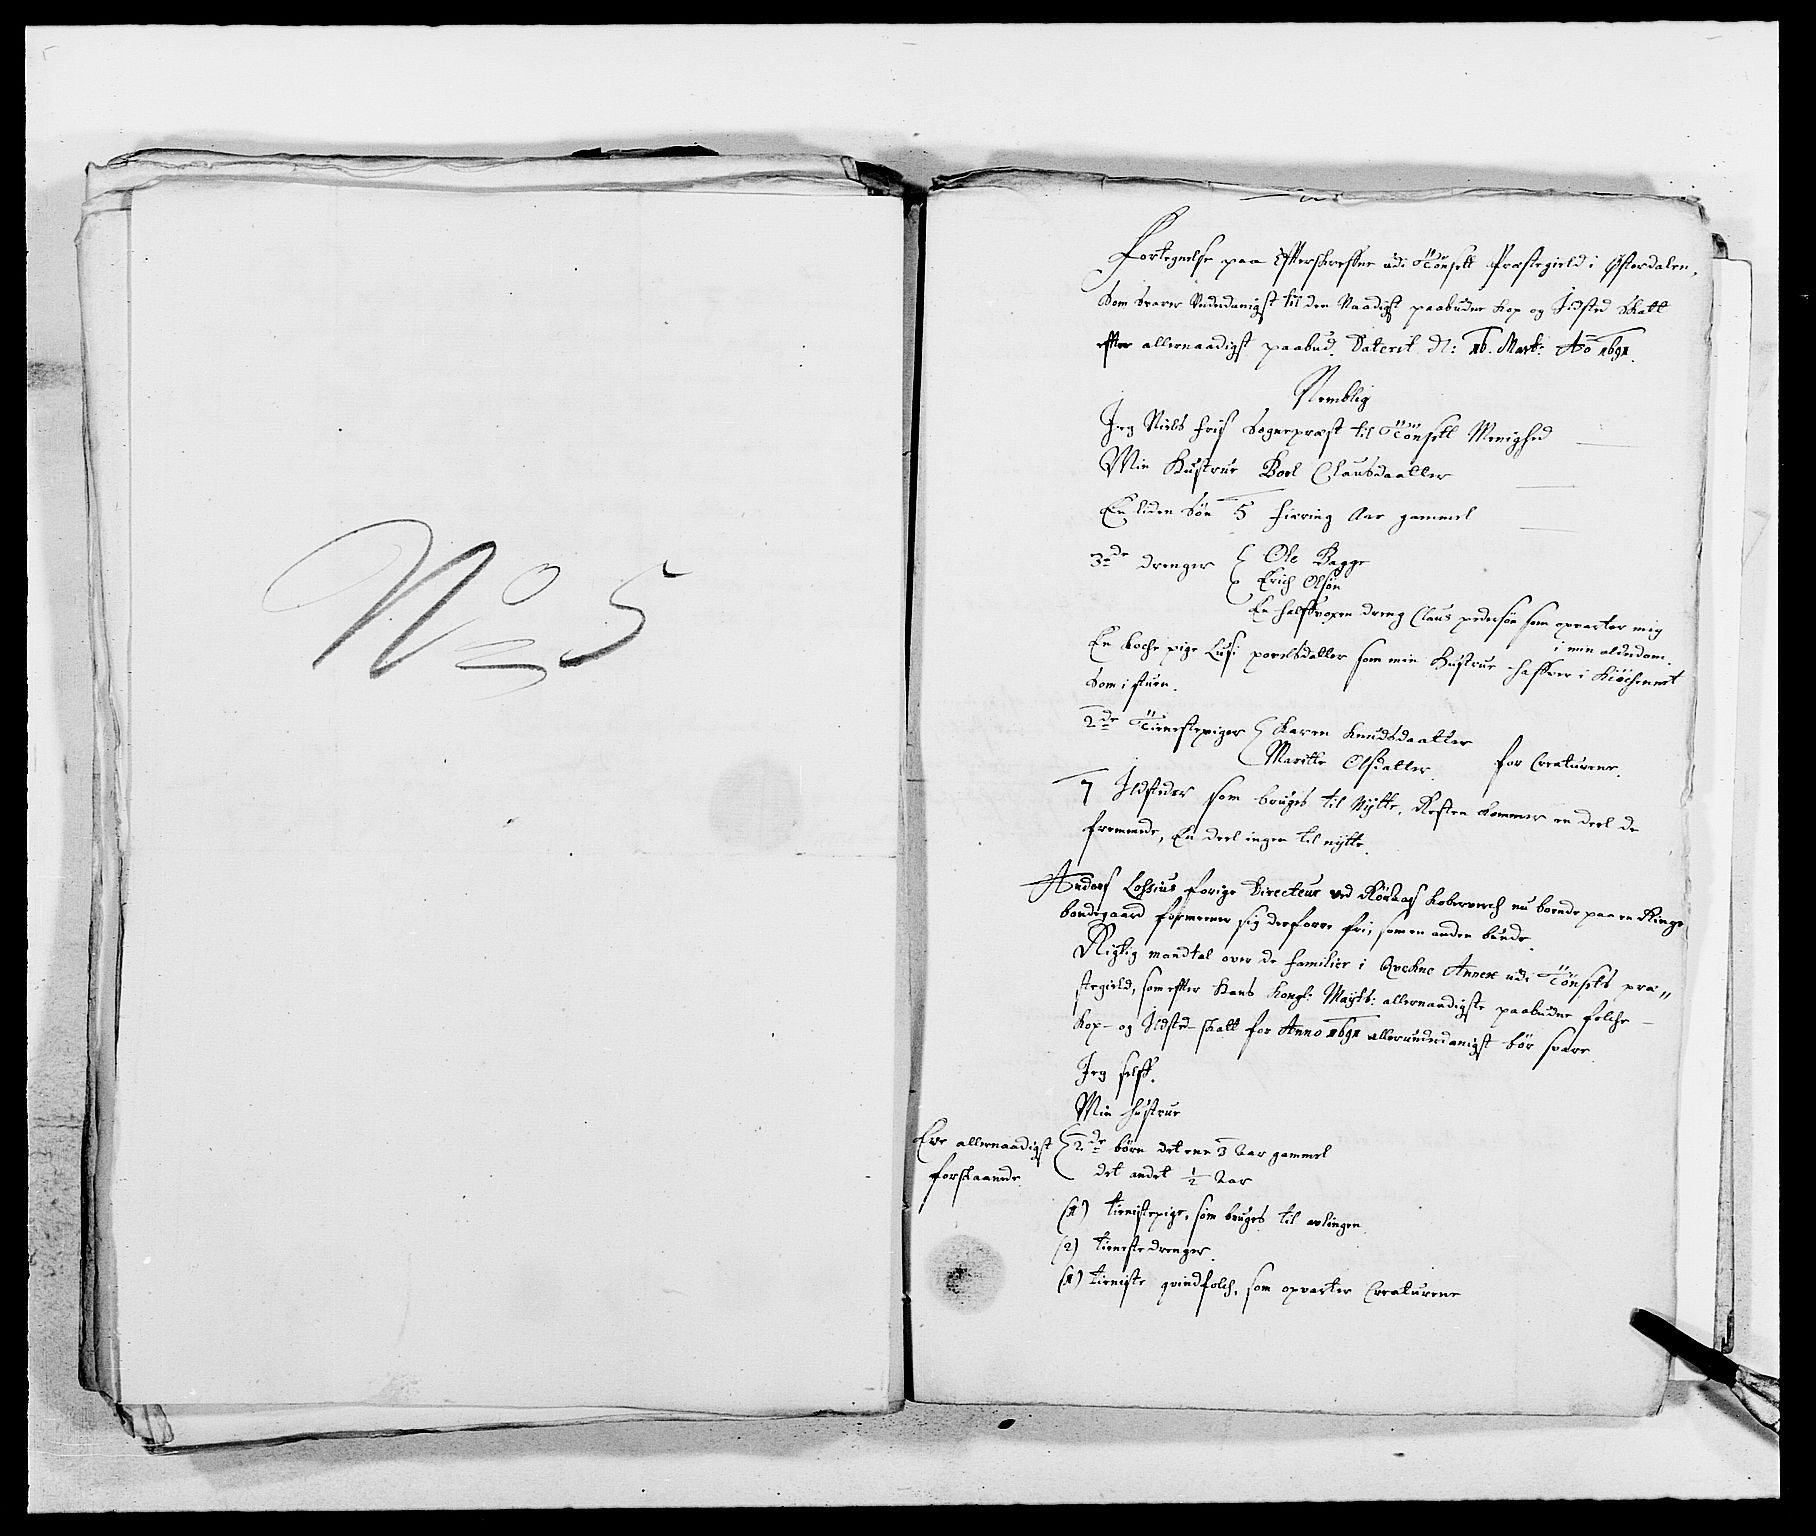 No 5
Fortegnelse paa Efterskrefne udi Tönsett Præstegield i Østerdalen,
Som svarer Underdanigst til den Naadigst paabudne Kop og Ildsted Skatt
efter allernaadigst paabud. Daterit. D: 16. Marti: Ao 1691.
Nemblig
Jeg Niels friis Sogneprest til Tönsett Menighed
Min Hustrue Boel Clausdaatter
En liden Sön 5 fierring Aar gammel
3de drenger { Ole Bagge
Erich Olsön
En halfvoxen dreng Claus pedersön som opvarter mig
i min alderdom.
En koche pige Lusi povelsdatter som min Hustrue haffver i Kiöchenet
Som i stuen.
2de Tienestepiger { Karen Knudsdaatter
Maritte Olsdatter. for Creaturene.
7 Ildsteder som bruges til Nytte, Resten kommer en deel de
fremmede, En deel ingen til nytte.
Anders Lossius forige Directeur ved Röraas Koberverch nu boende paa en Ringe
bondegaard formener sig derforre fri, som en anden bunde.
Rigtig mandtal over de familier i Qvekne Annex udi Tönsets præ"
stegield, som efter Hans Kongl: Mayts: allernaadigste paabudne folche
Kop- og Ildsted-skatt for Anno 1691 allerunderdanigst bör svare.
Jeg self.
Min hustrue
Ere allernaadigst { 2de börn det ene 3 Aar gammel
forskaanede. det andet 1/2 Aar
(1) tienistepige, som bruges til avlingen.
(2) tienestedrenger.
(1) tieniste qvindfolch, som opvarter Creaturene